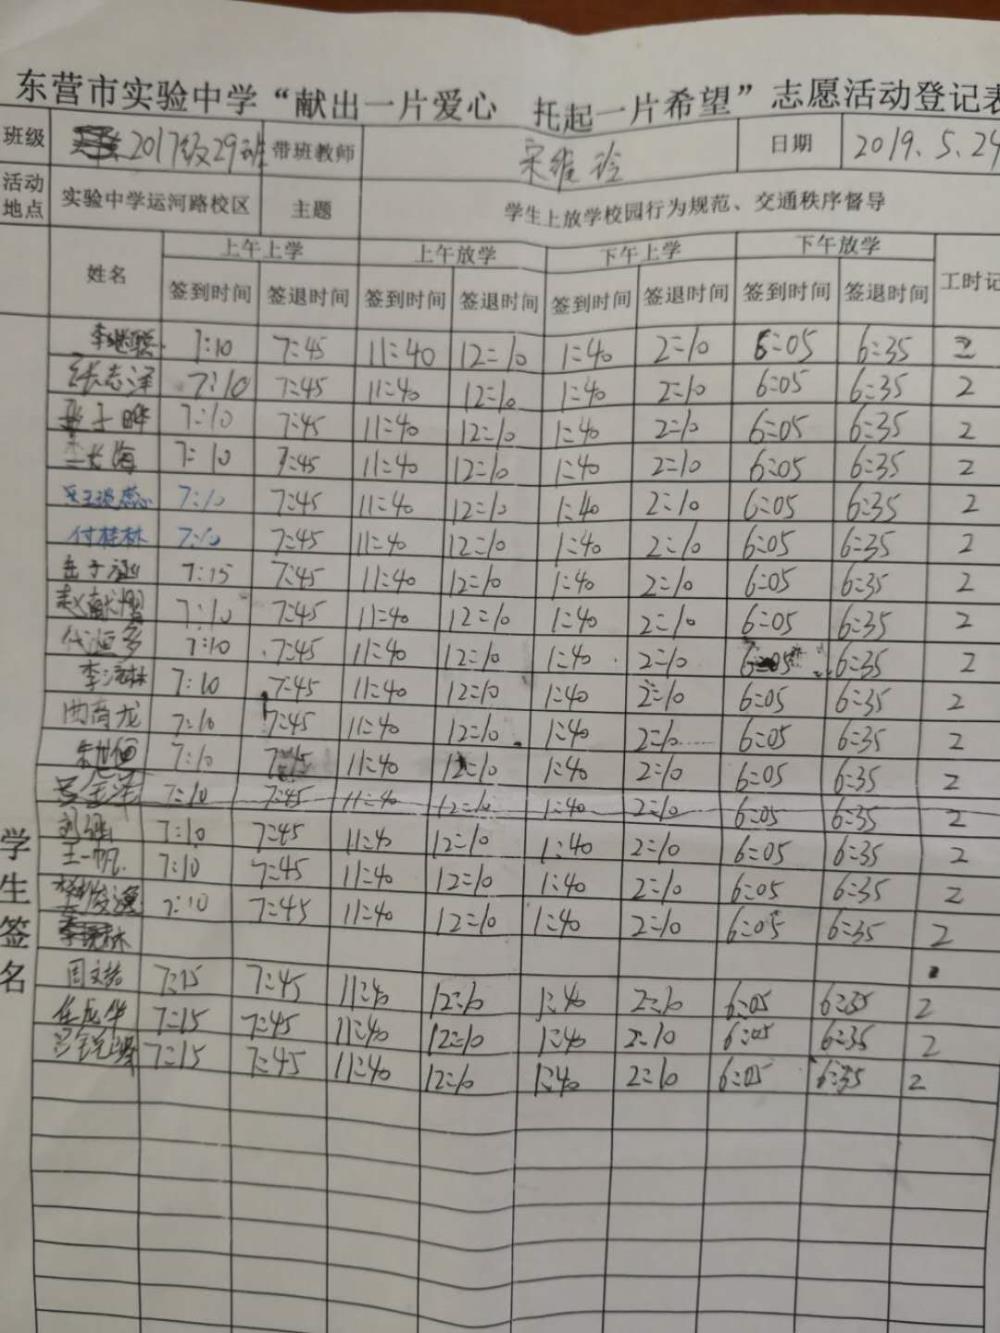 东营市实验中学“献出一片爱心 托起一片希望”志愿活动登记表
班级 2017级29班 带班教师 宋维玲 日期 2019.5.24
活动地点 实验中学运河路校区 主题 学生上放学校园行为规范、交通秩序督导
姓名 上午上学 上午放学 下午上学 下午放学 工时记
签到时间 签退时间 签到时间 签退时间 签到时间 签退时间 签到时间 签退时间
李继聪 7:10 7:45 11:40 12:10 1:40 2:10 6:05 6:35 2
张志泽 7:10 7:45 11:40 12:10 1:40 2:10 6:05 6:35 2
7:10 7:45 11:40 12:10 1:40 2:10 6:05 6:35 2
7:10 7:45 11:40 12:10 1:40 2:10 6:05 6:35 2
7:10 7:45 11:40 12:10 1:40 2:10 6:05 6:35 2
付桂林 7:10 7:45 11:40 12:10 1:40 2:10 6:05 6:35 2
7:15 7:45 11:40 12:10 1:40 2:10 6:05 6:35 2
赵献熠 7:10 7:45 11:40 12:10 1:40 2:10 6:05 6:35 2
7:10 7:45 11:40 12:10 1:40 2:10 6:05 6:35 2
7:10 7:45 11:40 12:10 1:40 2:10 6:05 6:35 2
7:10 7:45 11:40 12:10 1:40 2:10 6:05 6:35 2
7:10 7:45 11:40 12:10 1:40 2:10 6:05 6:35 2
7:10 7:45 11:40 12:10 1:40 2:10 6:05 6:35 2
刘强 7:10 7:45 11:40 12:10 1:40 2:10 6:05 6:35 2
王一帆 7:10 7:45 11:40 12:10 1:40 2:10 6:05 6:35 2
7:10 7:45 11:40 12:10 1:40 2:10 6:05 6:35 2
周文喆 7:15 7:45 11:40 12:10 1:40 2:10 6:05 6:35 2
任成华 7:15 7:45 11:40 12:10 1:40 2:10 6:05 6:35 2
7:15 7:45 11:40 12:10 1:40 2:10 6:05 6:35 2
学生签名